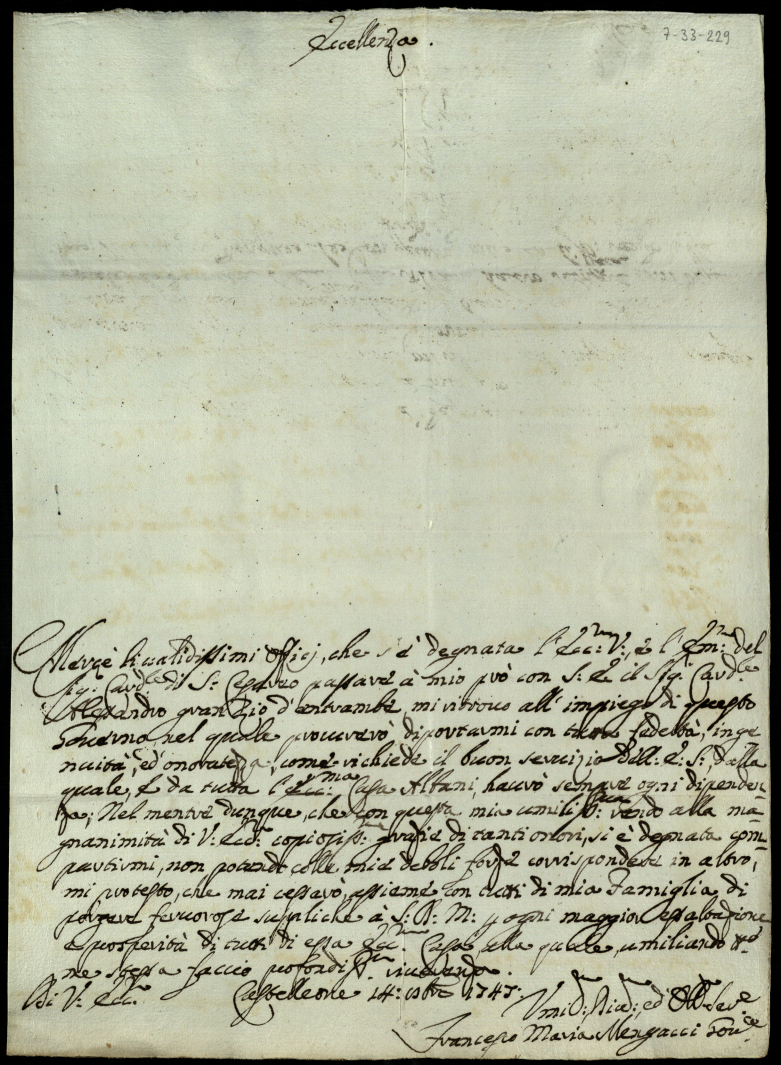 7-33-229
Eccellenza.
Mercè li validissimi officj, che s'è degnata l'Ecc: V:, è l'Em: del
Sig: Card.le di S: Cesareo passare à mio prò con S: E il Sig: Card.le
Alessandro gran Zio d'entrambe, mi ritrovo all'impiego di questo
Governo, nel quale procurerò diportarmi con tutta fedeltà, inge
nuità, ed'onoratezza, come richiede il buon servizio dell: E: S:, dalla
quale, è da tutta l'Ecc:ma Casa Albani, haurò sempre ogni dipenden
za; Nel mentre dunque, che con questa mia umiliss: rendo alla ma-
gnanimità di V: Ecc: copiosiss: grazie di tanti onori, si è degnata com-
partirmi, non potendo colle mie deboli forze corrispondere in altro,
mi protesto, che mai cessarò, assieme con tutti di mia Famiglia di
porgere fervorose suppliche à S: D: M: p ogni maggior essaltazione
e prosperità di tutti di essa Ecc: Casa, alla quale, umiliando
me stessa faccio profondiss: riverenza.
Di V: Ecc:
Castelleone 14: 1747:
Umil: Div: ed' Obb: Ser.e
Francesco Maria Mengacci Gov.re